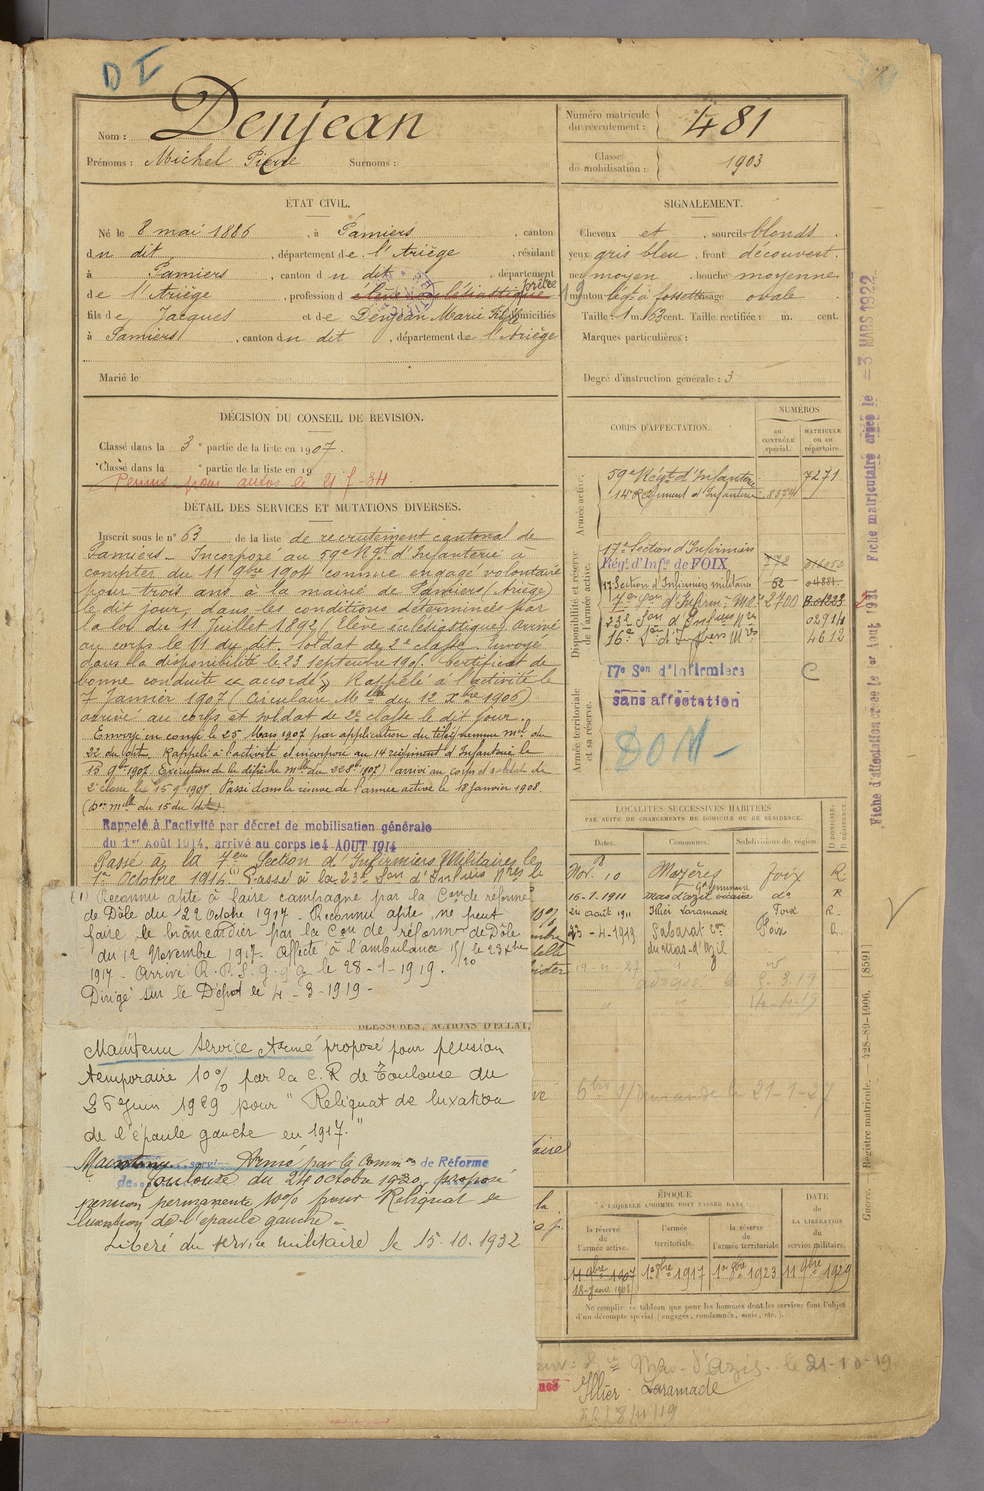 D I
Nom : Denjean
Prénoms : Michel Pierre Surnoms :
Numéro matricule du recrutement : 481
Classe de mobilisation : 1903
ÉTAT CIVIL.
Né le 8 mai 1886, à Pamiers, canton
dudit, département de l'Ariège, résidant
à Pamiers, canton dudit, département
de l'Ariège, profession d élève ecclésiastique prêtre
fils de Jacques et de Denjean Marie domiciliés
à Pamiers, canton dudit, département de l'Ariège
Marié le
SIGNALEMENT.
Cheveux et, sourcils blonds.
yeux gris bleu, front découvert.
nez moyen, bouche moyenne
menton légt à fossette visage ovale
Taille : 1 m. 63 cent. Taille rectifiée : m. cent.
Marques particulières :
Degré d'instruction générale : 3
DÉCISION DU CONSEIL DE REVISION.
Classé dans la 3e partie de la liste en 1907.
Classé dans la e partie de la liste en 19
Permis pour autos le
DÉTAIL DES SERVICES ET MUTATIONS DIVERSES.
Inscrit sous le n° 63 de la liste de recrutement cantonal de
Pamiers – Incorporé au 59e Rgt d'Infanterie à
compter du 11 9bre 1904 comme engagé volontaire
pour trois ans à la mairie de Pamiers (Ariège)
le dit jour, dans les conditions déterminées par
la loi du 11 Juillet 1892 (Elève ecclésiastique) arrivé
au corps le 11 du dit. Soldat de 2e classe. Envoyé
dans la disponibilité le 23 Septembre 190. Certificat de
bonne conduite "accordé". Rappelé à l'activité le
7 Janvier 1907 (Circulaire Mlle du 12 Xbre 1906)
arrivé au corps et soldat de 2e classe le dit jour.
Envoyé en congé le 25 Mars 1907 par application du télégramme mel du
22 du dit. Rappelé à l'activité et incorporé au 14e régiment d'Infanterie le
15 9bre 1907 (Exécution de la dépêche mlle du 22 8bre 1907) arrivé au corps et soldat de
2e classe le 15 9bre 1907. Passé dans la réserve de l'armée active le 18 Janvier 1908.
(Don mlle du 15 du dit)
Rappelé à l'activité par décret de mobilisation générale
du 1er Août 1914, arrivé au corps le 4 AOUT 1914
Passé à la 7eme Section d'Infirmiers Militaires le
1er Octobre 1916. (1) Passé à la 23e Son d'Infirs Mres le
(1) Reconnu apte à faire campagne par la Con de réforme
de Dôle du 12 Octobre 1917 – Reconnu apte, ne peut
faire le brancardier par la Con de réforme de Dôle
du 12 Novembre 1917. Affecté à l'ambulance le 23 Xbre
1917 – Arrivé R.P.S.G. le 28-1-1919.
Dirigé sur le Dépôt le 4-3-1919-
BLESSURES, ACTIONS D'ÉCLAT,
Maintenu Service Armé proposé pour pension
temporaire 10% par la C.R de Toulouse du
26 Juin 1929 pour "Reliquat de luxation
de l'épaule gauche en 1917."
Maintenu servi Armé par la Comm on de Réforme
de Toulouse du 24 octobre 1930. proposé
pension permanente 10% pour Reliquat de
luxation de l'épaule gauche –
Libéré du service militaire le 15.10.1932
CORPS D'AFFECTATION.
NUMÉROS
au CONTRÔLE spécial.
MATRICULE ou au répertoire.
Armée active.
59e Régt d'Infanterie 7271
14e Régiment d'Infanterie
Disponibilité et réserve de l'armée active.
17e Section d'Infirmiers
Régt d'Infie de FOIX
17e Section d'Infirmiers militaires 52
7e Son d'Infirm. Mres 2700
23e Son d'Infirs Mres
16e Son d'Infirs Mres 4612
Armée territoriale et sa réserve.
17e Son d'Infirmiers
sans affectation
C
DOM –
LOCALITÉS SUCCESSIVES HABITÉES
PAR SUITE DE CHANGEMENTS DE DOMICILE OU DE RÉSIDENCE.
Dates. Communes. Subdivisions de région. D. DOMICILE. R. RÉSIDENCE.
Nov. 10 Mazères Foix R
16-1-1911 Mas d'azil vicaire do R
24 août 1911 Illier Laramade Foix R
23-4-1919 Sabarat Cn du Mas-d'Azil Foix R.
14-4-19
21-1-27
ÉPOQUE
À LAQUELLE L'HOMME DOIT PASSER DANS
la réserve de l'armée active.
l'armée territoriale.
la réserve de l'armée territoriale
DATE de LA LIBÉRATION du service militaire.
11 9bre 1907 18 Janv 1908 1er 8bre 1917 1er 8bre 1923 11 9bre 1929
Ne remplir ce tableau que pour les hommes dont les services font l'objet
d'un décompte spécial (engagés, condamnés, omis, etc.).
Mas-d'Azil. le 21-10-19
Illier-Laramade
Fiche d'affectation créée le 1er Août 1921 Fiche matriculaire créée le = 3 MARS 1922
Guerre. — Registre matricule. 428-89-1906. [8591]